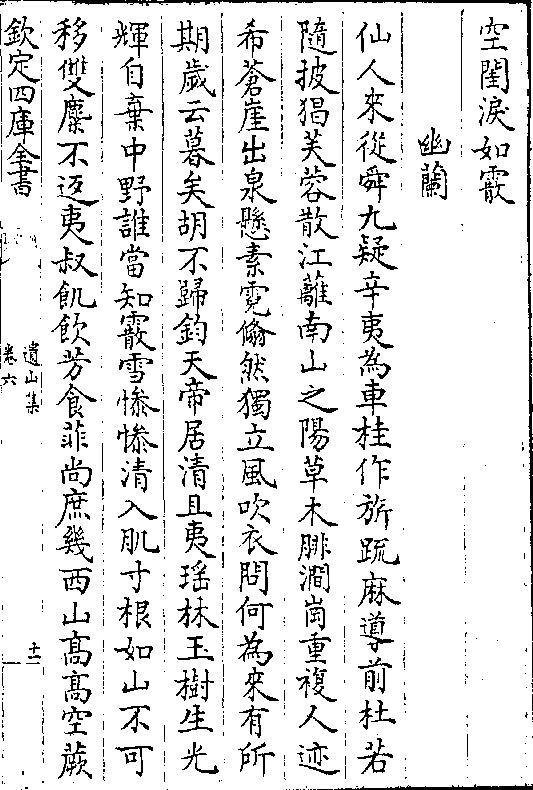 空閨淚如霰
幽蘭
仙人來從舜九疑辛夷為車桂作旂䟽麻導前杜若
隨披猖芙蓉散江蘺南山之陽草木腓澗崗重複人迹
希蒼崖出泉懸素霓翛然獨立風吹衣問何為來有所
期歲云暮矣胡不歸鈞天帝居清且夷瑶林玉樹生光
輝自棄中野誰當知霰雪惨惨清入肌寸根如山不可
移雙麋不返夷叔飢飲芳食菲尚庶幾西山髙髙空蕨
欽定四庫全書
遺山集
卷六
十一